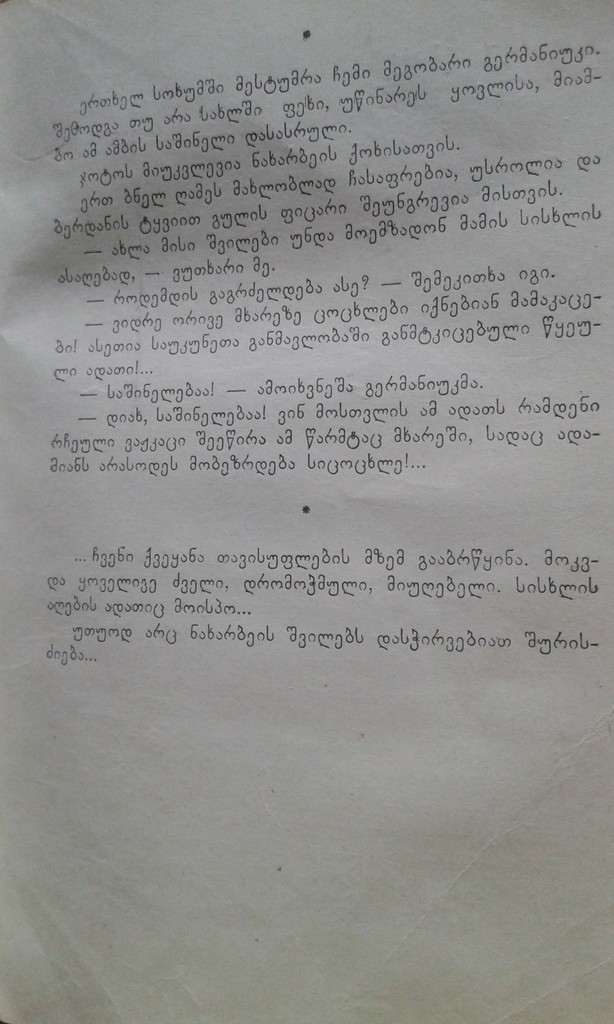 *
ერთხელ სოხუმში მესტუმრა ჩემი მეგობარი გერმანიუკი.
შემოდგა თუ არა სახლში ფეხი, უწინარეს ყოვლისა, მიამ-
ბო ამ ამბის საშინელი დასასრული.
ჯოტოს მიუკვლევია ნახარბეის ქოხისათვის.
ერთ ბნელ ღამეს მახლობლად ჩასაფრებია, უსროლია და
ბერდანის ტყვიით გულის ფიცარი შეუნგრევია მისთვის.
— ახლა მისი შვილები უნდა მოემზადონ მამის სისხლის
ასაღებად, — ვუთხარი მე.
— როდემდის გაგრძელდება ასე? — შემეკითხა იგი.
— ვიდრე ორივე მხარეზე ცოცხლები იქნებიან მამაკაცე-
ბი! ასეთია საუკუნეთა განმავლობაში განმტკიცებული წყეუ-
ლი ადათი!...
— საშინელებაა! — ამოიხვნეშა გერმანიუკმა.
— დიახ, საშინელებაა! ვინ მოსთვლის ამ ადათს რამდენი
რჩეული ვაჟკაცი შეეწირა ამ წარმტაც მხარეში, სადაც ადა-
მიანს არასოდეს მობეზრდება სიცოცხლე!...
*
...ჩვენი ქვეყანა თავისუფლების მზემ გააბრწყინა. მოკვ-
და ყოველივე ძველი, დრომოჭმული, მიუღებელი. სისხლის
აღების ადათიც მოისპო...
უთუოდ არც ნახარბეის შვილებს დასჭირვებიათ შურის-
ძიება...